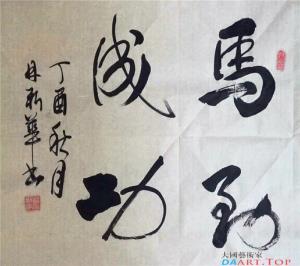 馬到
成功
丁酉秋月
大國藝術家
DAART.TOP